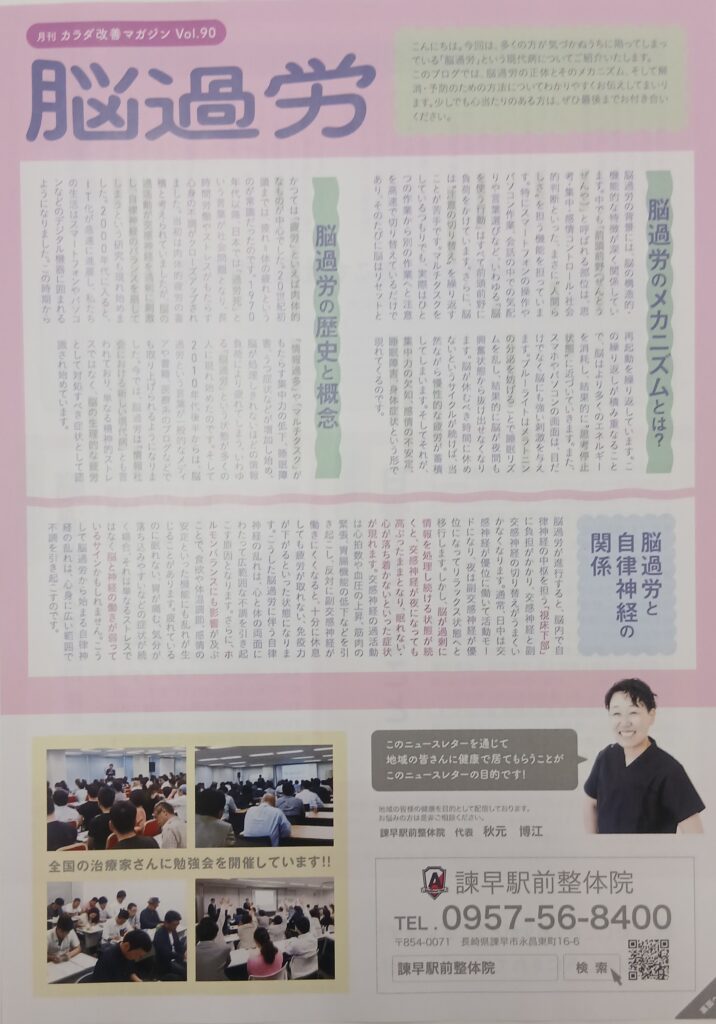 月刊 カラダ改善マガジン Vol.90
脳過労
こんにちは。今回は、多くの方が気づかぬうちに陥ってしまっ
ている「脳過労」という現代病についてご紹介いたします。
このブログでは、脳過労の正体とそのメカニズム、そして解
消・予防のための方法についてわかりやすくお伝えしてまいり
ます。少しでも心当たりのある方は、ぜひ最後までお付き合い
ください。
脳過労のメカニズムとは？
脳過労の背景には、脳の構造的・
機能的な特徴が深く関係してい
ます。中でも「前頭前野（ぜんとう
ぜんや）」と呼ばれる部位は、思
考・集中・感情コントロール・社会
的判断といった、まさに"人間ら
しさ"を担う機能を担っていま
す。特にスマートフォンの操作や
パソコン作業、会話の中での気配
りや言葉選びなど、いわゆる「脳
を使う行動」はすべて前頭前野に
負荷をかけています。さらに、脳
は「注意の切り替え」を繰り返す
ことが苦手です。マルチタスクを
しているつもりでも、実際はひと
つの作業から別の作業へと注意
を高速で切り替えているだけで
あり、そのたびに脳はリセットと
再起動を繰り返しています。こ
の繰り返しが積み重なること
で、脳はより多くのエネルギー
を消耗し、結果的に「思考停止
状態」に近づいていきます。また、
スマホやパソコンの画面は、目だ
けでなく脳にも強い刺激を与え
ます。ブルーライトはメラトニン
の分泌を妨げることで睡眠リズ
ムを乱し、結果的に脳が夜間も
興奮状態から抜け出せなくなり
ます。脳が休むべき時間に休め
ないというサイクルが続けば、当
然ながら慢性的な疲労が蓄積
してしまいます。そしてそれが、
集中力の欠如、感情の不安定、
睡眠障害、身体症状という形で
現れてくるのです。
脳過労の歴史と概念
かつては「疲労」といえば肉体的
なものが中心でした。20世紀初
頭までは、疲れ＝体の疲れという
のが常識だったのです。1970
年代以降、日本では「過労死」と
いう言葉が社会問題となり、長
時間労働やストレスがもたらす
心身の不調がクローズアップされ
ました。当初は肉体的疲労の蓄
積と考えられていましたが、脳の
過活動が交感神経を過剰に刺激
し、自律神経のバランスを崩して
しまうという研究も現れ始めま
した。2000年代に入ると、
IT化が急速に進展し、私たち
の生活はスマートフォンやパソコ
ンなどのデジタル機器に囲まれる
ようになりました。この時期から
「情報過多」や「マルチタスク」が
もたらす集中力の低下、睡眠障
害、うつ症状などが増加し始め、
脳が処理しきれないほどの情報
負荷により疲れてしまう、いわゆ
る「脳過労」という状態が多くの
人に現れ始めたのです。そして
2010年代後半からは、「脳
過労」という言葉が一般的なメディ
アや書籍、医療系のブログなどで
も取り上げられるようになりま
した。今では、脳過労は「情報社
会における新しい現代病」とも言
われており、単なる精神的ストレ
スではなく、脳の生理的な疲労
として対処すべき症状として認
識され始めています。
脳過労と
自律神経の
関係
脳過労が進行すると、脳内で自
律神経の中枢を担う「視床下部」
に負担がかかり、交感神経と副
交感神経の切り替えがうまくい
かなくなります。通常、日中は交
感神経が優位に働いて活動モー
ドになり、夜は副交感神経が優
位になってリラックス状態へと
移行します。しかし、脳が過剰に
情報を処理し続ける状態が続
くと、交感神経が夜になっても
高ぶったままとなり、眠れない・
心が落ち着かないといった症状
が現れます。交感神経の過活動
は心拍数や血圧の上昇、筋肉の
緊張、胃腸機能の低下などを引
き起こし、反対に副交感神経が
働きにくくなると、十分に休息
しても疲労が取れない、免疫力
が下がるといった状態になりま
す。こうした脳過労に伴う自律
神経の乱れは、心と体の両面に
わたって広範囲な不調を引き起
こす原因となります。さらに、ホ
ルモンバランスにも影響が及ぶ
ことで、食欲や体温調節、感情の
安定といった機能にも乱れが生
じることがあります。疲れている
のに眠れない、胃が痛む、気分が
落ち込みやすいなどの症状が続
く場合、それは単なるストレスで
はなく、脳と神経の働きが弱って
いるサインかもしれません。こう
して脳過労から始まる自律神
経の乱れは、心身に広い範囲で
不調を引き起こすのです。
このニュースレターを通じて
地域の皆さんに健康で居てもらうことが
このニュースレターの目的です！
地域の皆様の健康を目的として配信しております。
お悩みの方は是非ご相談ください。
諫早駅前整体院 代表 秋元 博江
全国の治療家さんに勉強会を開催しています!!
諫早駅前整体院
TEL . 0957-56-8400
〒854-0071 長崎県諫早市永昌東町16-6
諫早駅前整体院 検 索